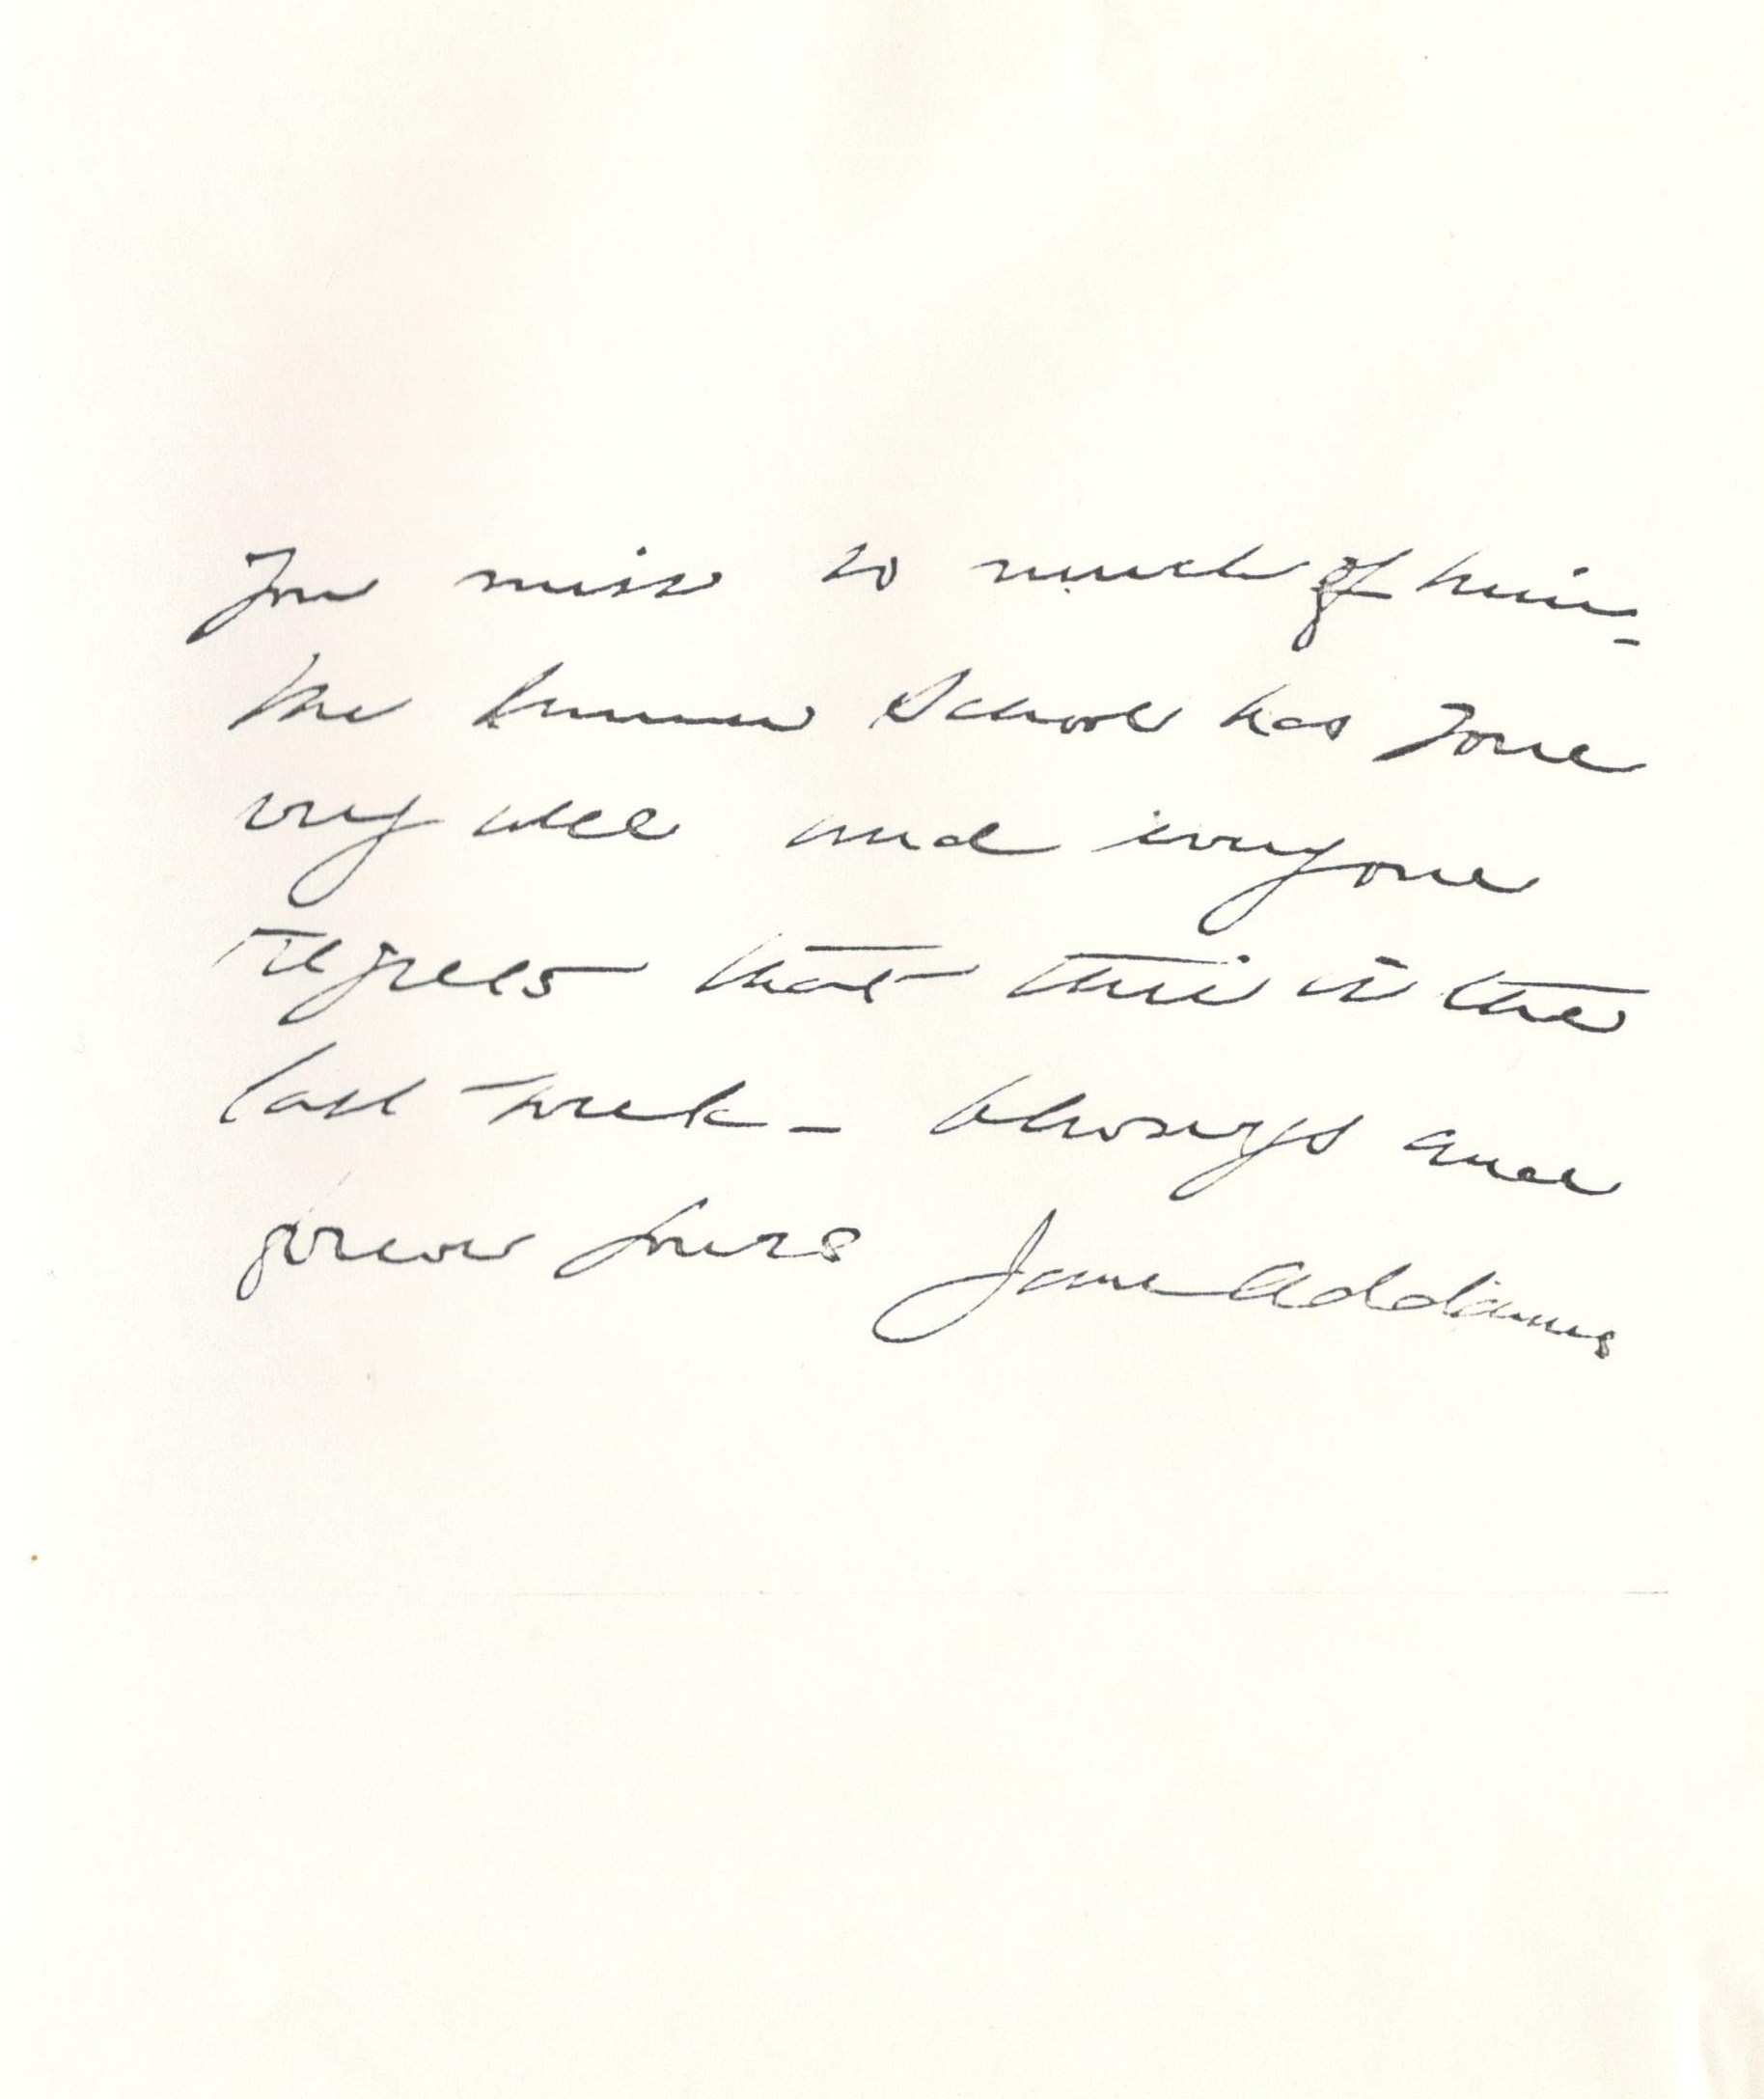 You miss so much of him –
The Summer School has gone
very well and everyone
regrets that this is the
last week – Always and
forever yours Jane Addams